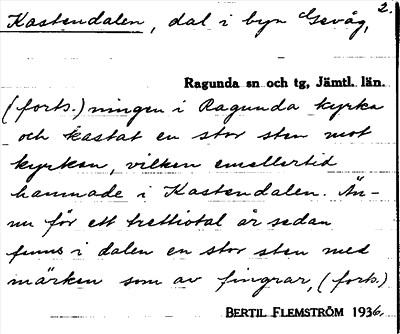 2.
Kastendalen, dal i byn Gevåg,
Ragunda sn och tg, Jämtl. län.
(forts.) ningen i Ragunda kyrka
och kastat en stor sten mot
kyrkan, vilken emellertid
hamnade i Kastendalen. Än-
nu för ett trettiotal år sedan
fanns i dalen en stor sten med
märken som av fingrar, (forts.)
BERTIL FLEMSTRÖM 1936.